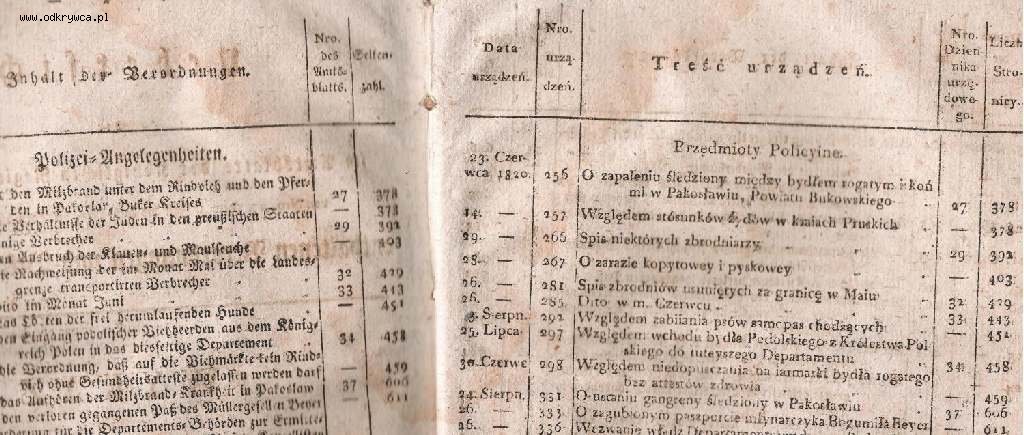 www.odkrywca.pl
Inhalt der Verordnungen.
Nro. des Amts-blatts.
Seiten-zahl.
Polizei-Angelegenheiten.
den Milzbrand unter dem Rindvieh und den Pfer-
den in Pakoslaw, Buker Kreises 27 378
Verhältnisse der Juden in den preußischen Staaten — 378
einige Verbrecher 29 392
Ausbruch der Klauen- und Maulseuche — 403
Nachweisung der im Monat Mai über die Landes-
grenze transportirten Verbrecher 32 429
dito im Monat Juni 33 443
das Tödten der frei herumlaufenden Hunde — 451
den Eingang podolischer Viehheerden aus dem König-
reich Polen in das diesseitige Departement 34 458
die Verordnung, daß auf die Viehmärkte kein Rind-
vieh ohne Gesundheitsatteste zugelassen werden darf — 459
das Aufhören der Milzbrand-Krankheit in Pakoslaw 37 606
den verloren gegangenen Paß des Müllergesellen Beyer — 611
für die Departements-Behörden zur
Data urządzeń.
Nro. urzą-dzeń.
Treść urządzeń.
Nro. Dzien nika urzę-dowe-go.
Liczb Stro-nicy.
Przedmioty Policyine.
23. Czer-
wca 1820. 256 O zapaleniu śledziony między bydłem rogatym i koń
mi w Pakosławiu, Powiatu Bukowskiego 27 378
24. — 257 Względem stosunków żydów w kraiach Pruskich — 378
29. — 265 Spis niektórych zbrodniarzy 29 392
28. — 267 O zarazie kopytowey i pyskowey — 403
26. — 281 Spis zbrodniów usuniętych za granicę w Maiu 32 429
26. — 285 Dito w m. Czerwcu 33 443
3. Sierpn. 292 Względem zabiiania psów samopas chodzących — 451
25. Lipca 297 Względem wchodu bydła Podolskiego z Królestwa Pol
skiego do tuteyszego Departamentu 34 458
30. Czerwc 298 Względem niedopuszczania na iarmarki bydła rogatego
bez attestów zdrowia — 459
24. Sierpn. 331 O ustaniu gangreny śledziony w Pakosławiu 37 606
26. — 333 O zagubionym paszporcie młynarczyka Bogumiła Beyer — 611
26. — 336 Wezwanie władz